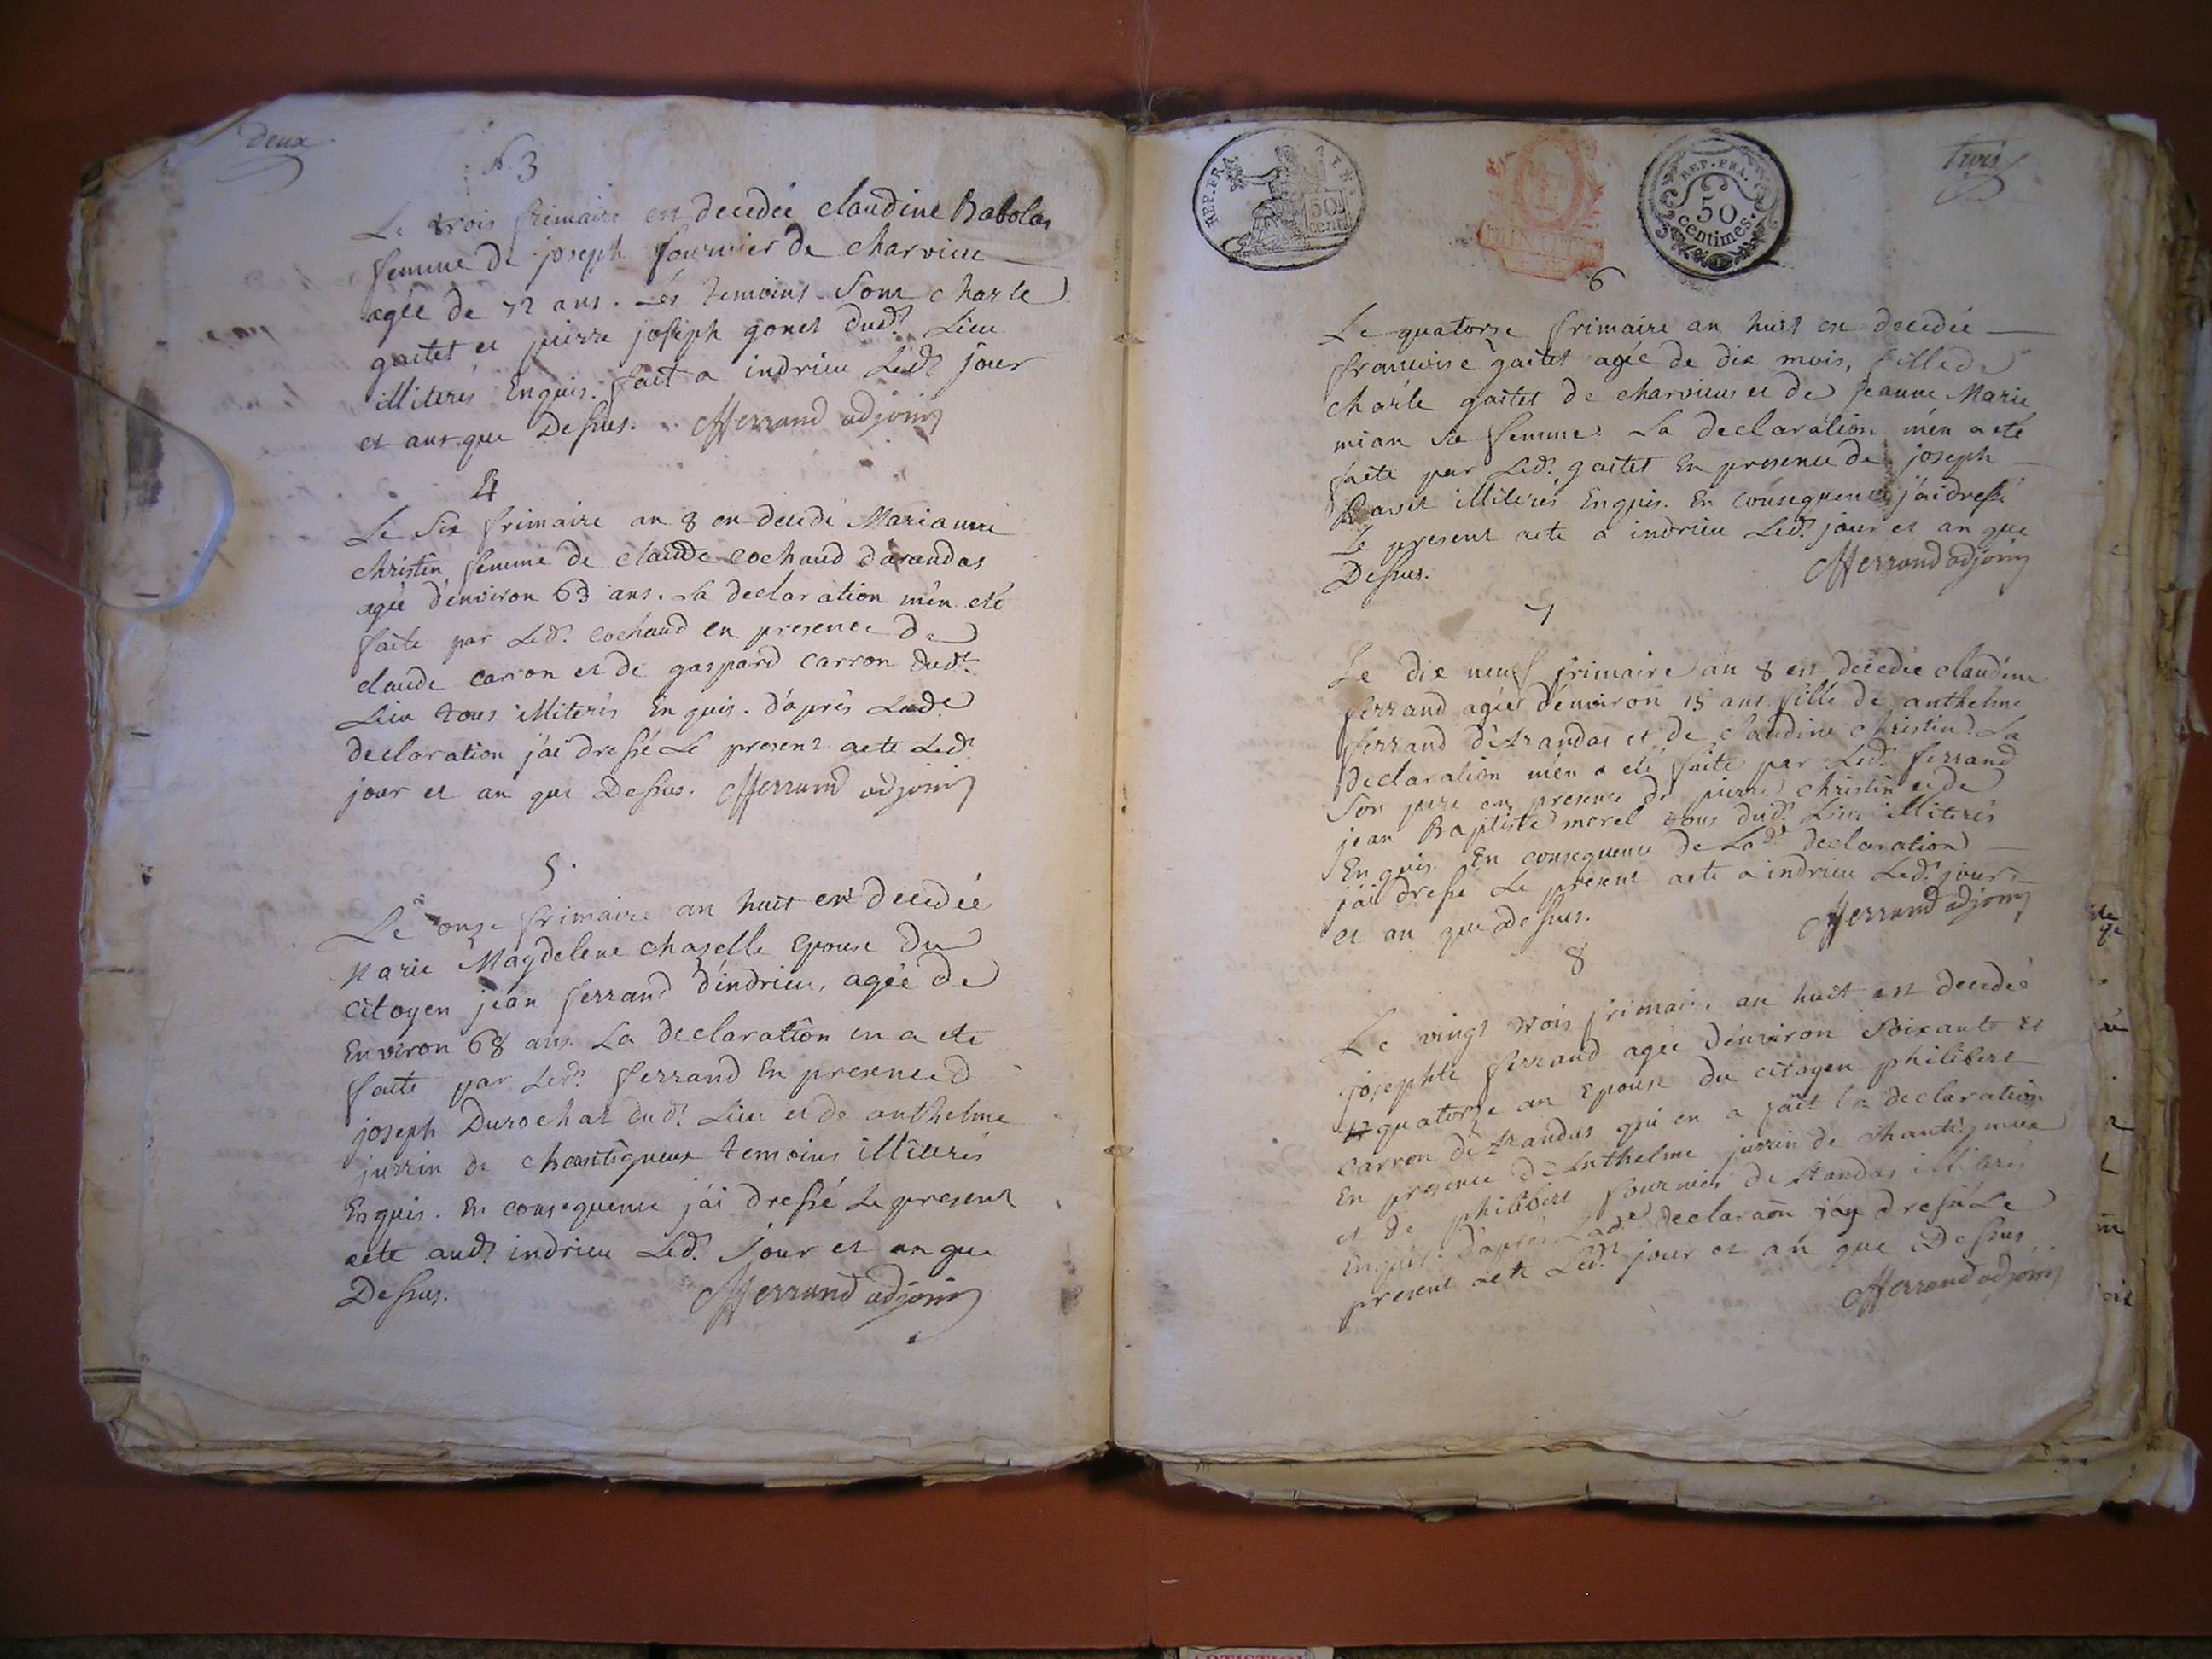 Deux
N. 3
Le trois frimaire est decedée claudine Babolas
femme de joseph fournier de charvieu
agée de 72 ans. Les temoins sont charle
gaitet et pierre joseph gonet dudt. Lieu
illiterés Enquis. fait a indrieu Ledt jour
et an que Dessus. Mferrand adjoint
4
Le six frimaire an 8 est decedé Marianne
christin femme de claude cochaud darandas
agée d'environ 63 ans. La declaration m'en eté
faite par Ledt. cochaud en presence de
claude carron et de gaspard carron dudt.
Lieu tous illiterés Enquis. d'après Lade
declaration j'ai dressé Le present acte Ledt
jour et an que Dessus. Mferrand adjoint
5.
Le onze frimaire an huit est decedée
Marie Magdelene chazelle epouse du
citoyen jean ferrand d'indrieu, agée de
Environ 68 ans La declaration en a ete
faite par Ledt. ferrand En presence d
joseph Durochat dudt. Lieu et de anthelme
juvrin de chantigneux temoins illiterés
Enquis. En consequence j'ai dressé Le present
acte audt indrieu Ledt. jour et an que
Dessus. Mferrand adjoint
REP. FRA.
50
cent.
trois
REP. FRA.
50
centimes.
6
Le quatorze frimaire an huit est decedée
francoise gaitet agée de dix mois, fille de
charle gaitet de charvieux et de Jeanne Marie
mian sa femme. La declaration m'en a eté
faite par Ledt. gaitet En presence de joseph
illiterés Enquis. En consequence j'ai dressé
Le present acte a indrieu Ledt. jour et an que
Dessus. Mferrand adjoint
7
Le dix neuf frimaire an 8 est decedée claudine
ferrand agée d'environ 15 ans fille de anthelme
ferrand d'Arandas et de claudine christin. La
declaration m'en a eté faite par Ledt. ferrand
son pere en presence de pierre christin et de
jean Baptiste morel tous dudt. Lieu illiterés
Enquis. En consequence de Lade. declaration
j'ai dressé Le present acte a indrieu Ledt. jour
et an que Dessus. Mferrand adjoint
8
Le vingt trois frimaire an huit est decedée
josephte ferrand agée d'environ soixante et
quatorze an Epouse du citoyen philibert
carron d'Arandas qui en a fait la declaration
En presence de Anthelme juvrin de chantigneux
et de philibert fournier de Arandas illiterés
Enquis. D'après Lade declaraon j'ay dressé Le
present acte Ledt. jour et an que Dessus
Mferrand adjoint